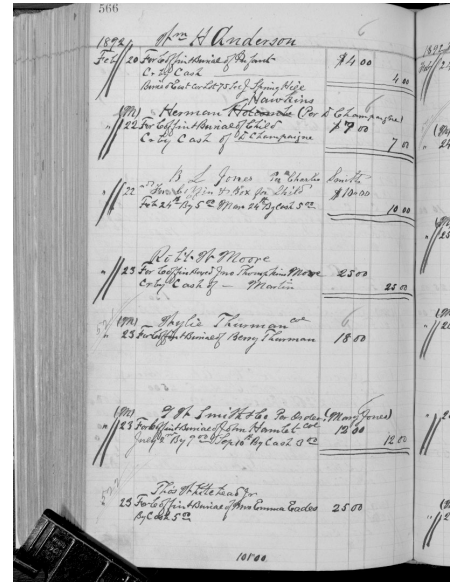 566
Wm H Anderson
1892
Feby 20 For Coffin & Burial of Infant $4 00
Cr by Cash 4 00
Buried East Cor Lot 75 Sec J Spring Hige
Hawkins
(M) Herman Holcombe (Per D Champaigne)
22 For Coffin & Burial of Child $7 00
Cr by Cash of D Champaigne 7 00
B L Jones Per Charlie Smith
22 For Coffin & Box for Child $10.00
Feb 24th By 5.00 Mar 24th By Cash 5.00 10 00
Robt W Moore
23 For Coffin Bured Jno Thompkins Moore 25 00
Cr by Cash of — Martin 25 00
(M) Wylie Thurman col
23 For Coffin & Burial of Berry Thurman 18 00
(M) J W Smith & Co Per Order (Mary Jones)
23 For Coffin & Burial of John Hamlet col 12 00
July 2 By 9.00 Sep 10th By Cash 3.00 12 00
Thos Whitehead Jr
23 For Coffin & Burial of Mrs Emma Eades 25 00
By Cash 5.00
101.00